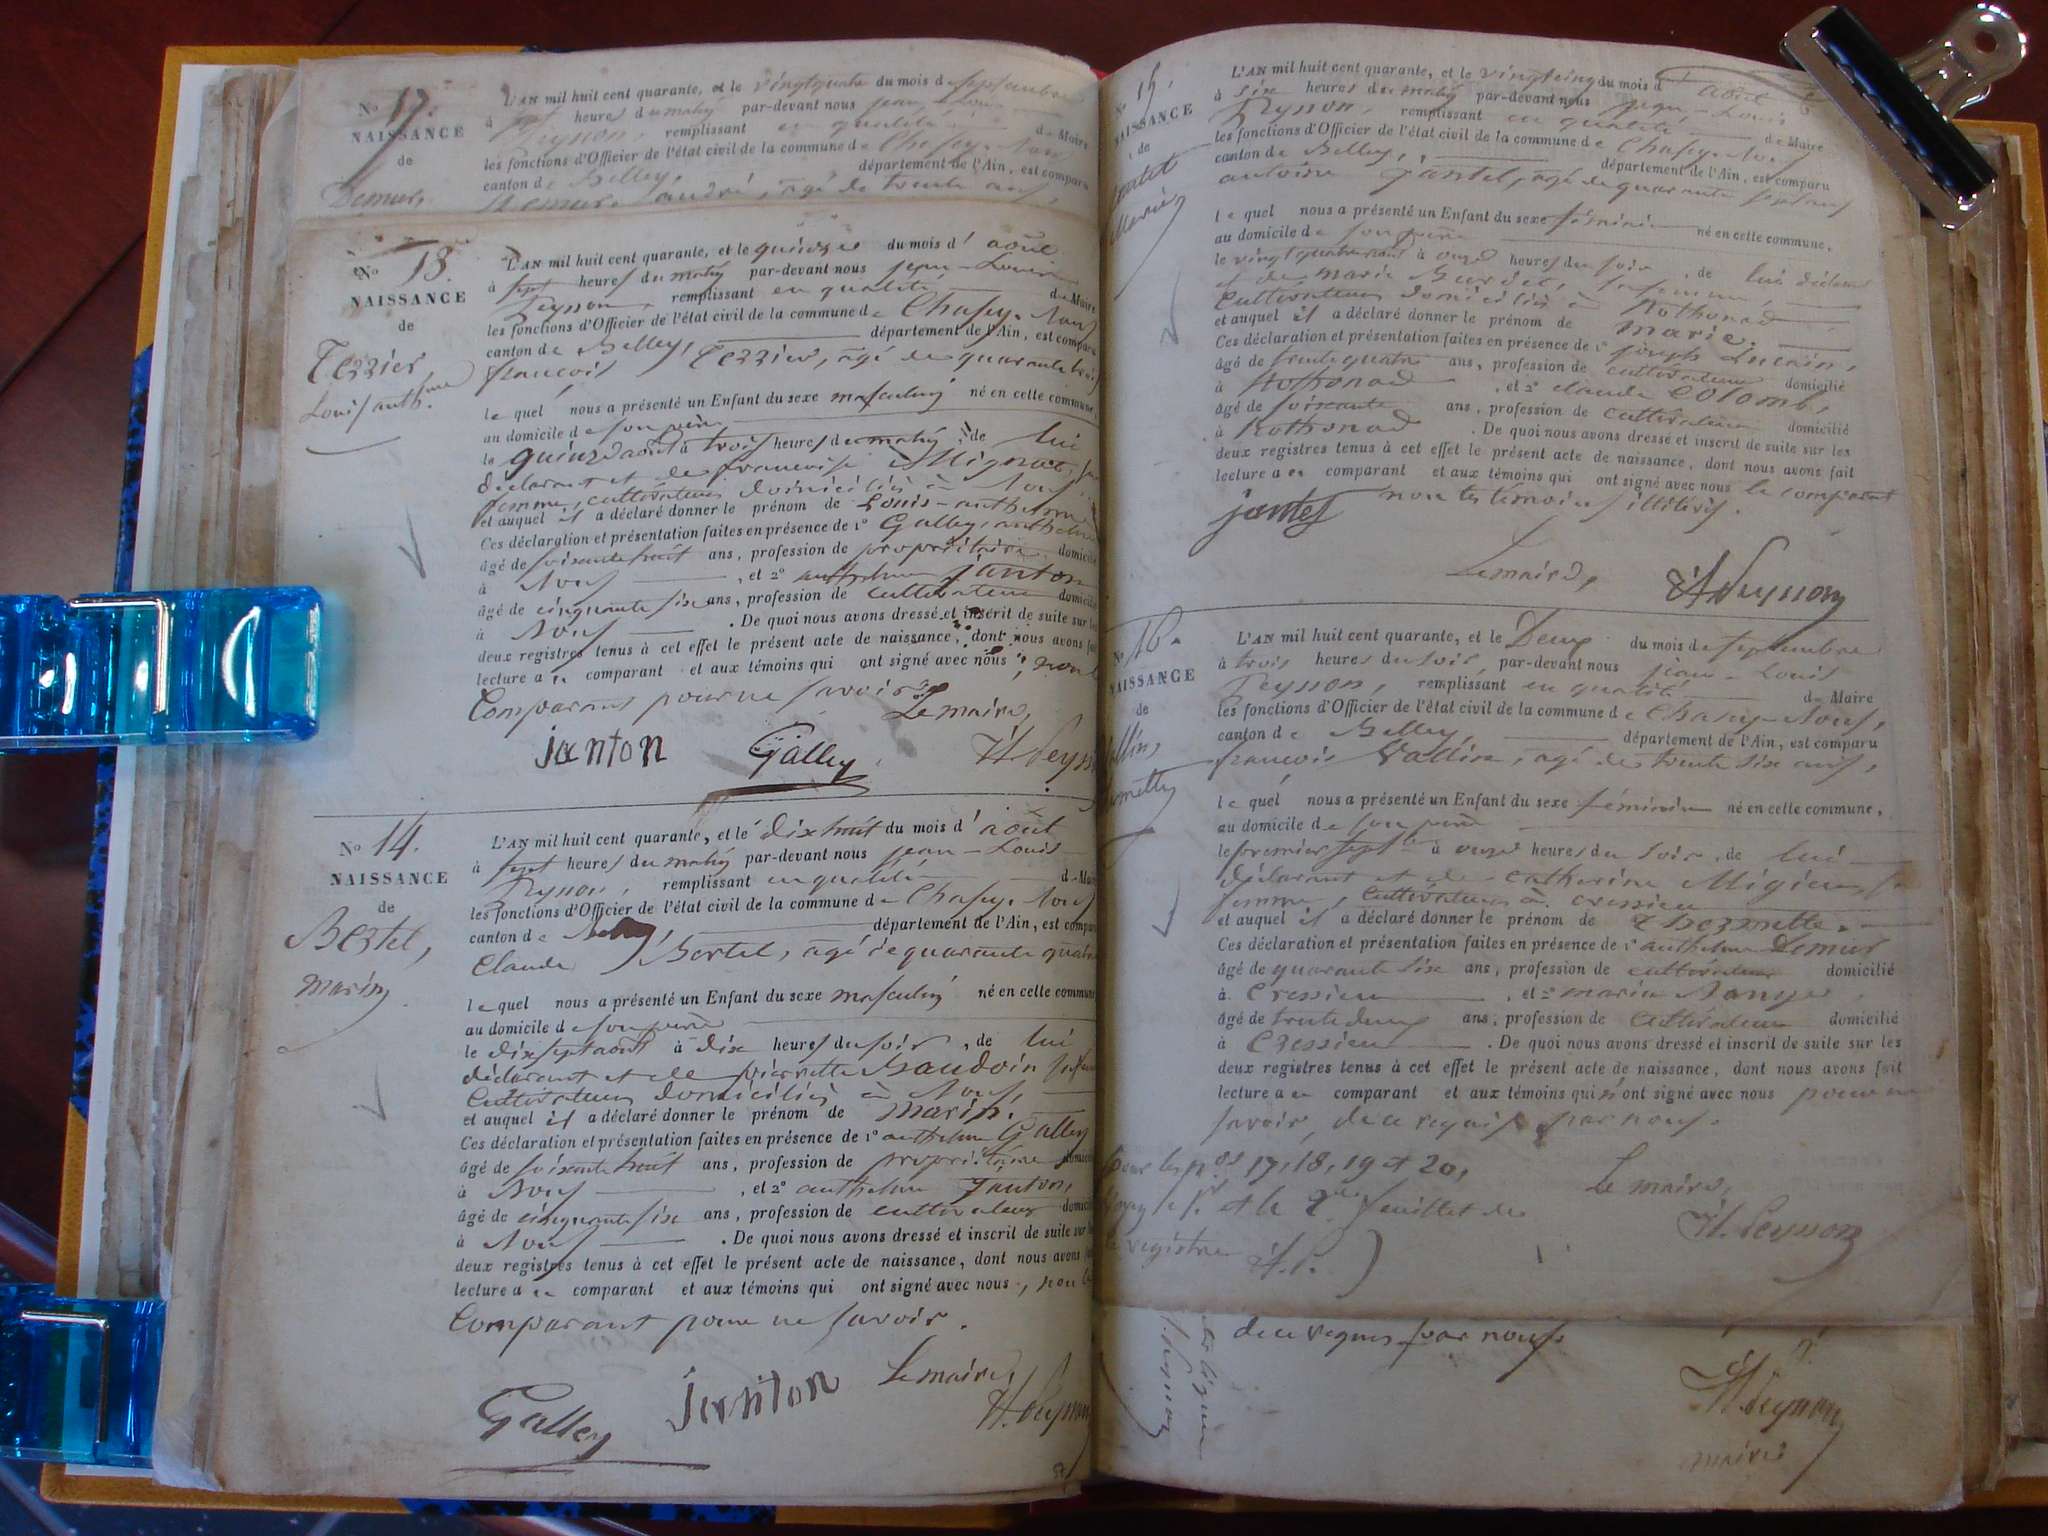 N° 17.
NAISSANCE
de
Demur,
L'AN mil huit cent quarante, et le vingtquatre du mois de septembre
à sept heures du matin par-devant nous jean-Louis
Peysson, remplissant en qualité de Maire
les fonctions d'Officier de l'état civil de la commune de Chazey-Nous
canton de Belley, département de l'Ain, est comparu
Demur, andré, âgé de trente ans,
N° 13.
NAISSANCE
de
Terrier
Louis anthme
L'AN mil huit cent quarante, et le quinze du mois d'août
à sept heures du matin par-devant nous jean-Louis
Peysson, remplissant en qualité de Maire
les fonctions d'Officier de l'état civil de la commune de Chazey-Nous
canton de Belley, département de l'Ain, est comparu
françois Terrier, âgé de quarante trois
lequel nous a présenté un Enfant du sexe masculin né en cette commune,
au domicile de son père
le quinze août à trois heures du matin, de lui
déclarant et de françoise Mignot, sa
femme, cultivateurs domiciliés à Nous,
et auquel il a déclaré donner le prénom de Louis-anthelme
Ces déclaration et présentation faites en présence de 1° Galley, anthelme
âgé de soixante huit ans, profession de propriétaire domicilié
à Nous, et 2° anthelme janton
âgé de cinquante six ans, profession de cultivateur domicilié
à Nous. De quoi nous avons dressé et inscrit de suite sur les
deux registres tenus à cet effet le présent acte de naissance, dont nous avons fait
lecture au comparant et aux témoins qui ont signé avec nous, non le
Comparant pour ne savoir.
Le maire,
janton Galley H. Peysson
N° 14.
NAISSANCE
de
Bertel,
marin
L'AN mil huit cent quarante, et le dix huit du mois d'août
à sept heures du matin par-devant nous jean-Louis
Peysson, remplissant en qualité de Maire
les fonctions d'Officier de l'état civil de la commune de Chazey-Nous
canton de Belley, département de l'Ain, est comparu
Claude Bertel, âgé de quarante quatre
lequel nous a présenté un Enfant du sexe masculin né en cette commune
au domicile de son père
le dixsept août à dix heures du soir, de lui
déclarant et de pierrette Baudoin sa femme
Cultivateurs domiciliés à Nous,
et auquel il a déclaré donner le prénom de marin.
Ces déclaration et présentation faites en présence de 1° anthelme Galley
âgé de soixante huit ans, profession de propriétaire domicilié
à Nous, et 2° anthelme Janton,
âgé de cinquante six ans, profession de cultivateur domicilié
à Nous. De quoi nous avons dressé et inscrit de suite sur les
deux registres tenus à cet effet le présent acte de naissance, dont nous avons fait
lecture au comparant et aux témoins qui ont signé avec nous, non le
Comparant pour ne savoir.
Le maire,
Galley janton H. Peysson
57
N° 15.
NAISSANCE
de
Marie
L'AN mil huit cent quarante, et le vingtcinq du mois d'août
à six heures du matin par-devant nous jean-Louis
Peysson, remplissant en qualité de Maire
les fonctions d'Officier de l'état civil de la commune de Chazey-Nous
canton de Belley, département de l'Ain, est comparu
antoine Jantel, âgé de quarante sept ans
lequel nous a présenté un Enfant du sexe féminin né en cette commune,
au domicile de son père
le vingtquatre août à onze heures du soir, de lui déclarant
et de marie Burdet, sa femme,
Cultivateurs domiciliés à Rothonod
et auquel il a déclaré donner le prénom de marie.
Ces déclaration et présentation faites en présence de 1° joseph
âgé de trente quatre ans, profession de cultivateur domicilié
à Rothonod, et 2° claude Colomb,
âgé de soixante ans, profession de cultivateur domicilié
à Rothonod. De quoi nous avons dressé et inscrit de suite sur les
deux registres tenus à cet effet le présent acte de naissance, dont nous avons fait
lecture au comparant et aux témoins qui ont signé avec nous le comparant
non les témoins illitérés.
jantel
Le maire, H. Peysson
N° 16.
NAISSANCE
de
L'AN mil huit cent quarante, et le Deux du mois de septembre
à trois heures du soir, par-devant nous jean-Louis
Peysson, remplissant en qualité de Maire
les fonctions d'Officier de l'état civil de la commune de Chazey-Nous,
canton de Belley, département de l'Ain, est comparu
françois Vallin, âgé de trente six ans,
lequel nous a présenté un Enfant du sexe féminin né en cette commune,
au domicile de son père
le premier septbre à onze heures du soir, de lui
déclarant et de Catherine Migieu, sa
femme, Cultivateurs à cressieu
et auquel il a déclaré donner le prénom de
Ces déclaration et présentation faites en présence de 1° anthelme Demur
âgé de quarante six ans, profession de cultivateur domicilié
à Cressieu, et 2° marin
âgé de trente deux ans, profession de cultivateur domicilié
à Cressieu. De quoi nous avons dressé et inscrit de suite sur les
deux registres tenus à cet effet le présent acte de naissance, dont nous avons fait
lecture au comparant et aux témoins qui n'ont signé avec nous pour ne
savoir, de ce requis par nous.
Pour les nos 17, 18, 19 et 20,
voyez le 1er et le 2me feuillet du
registre H.P.
Le maire,
H. Peysson
de ce requis par nous.
H. Peysson
maire